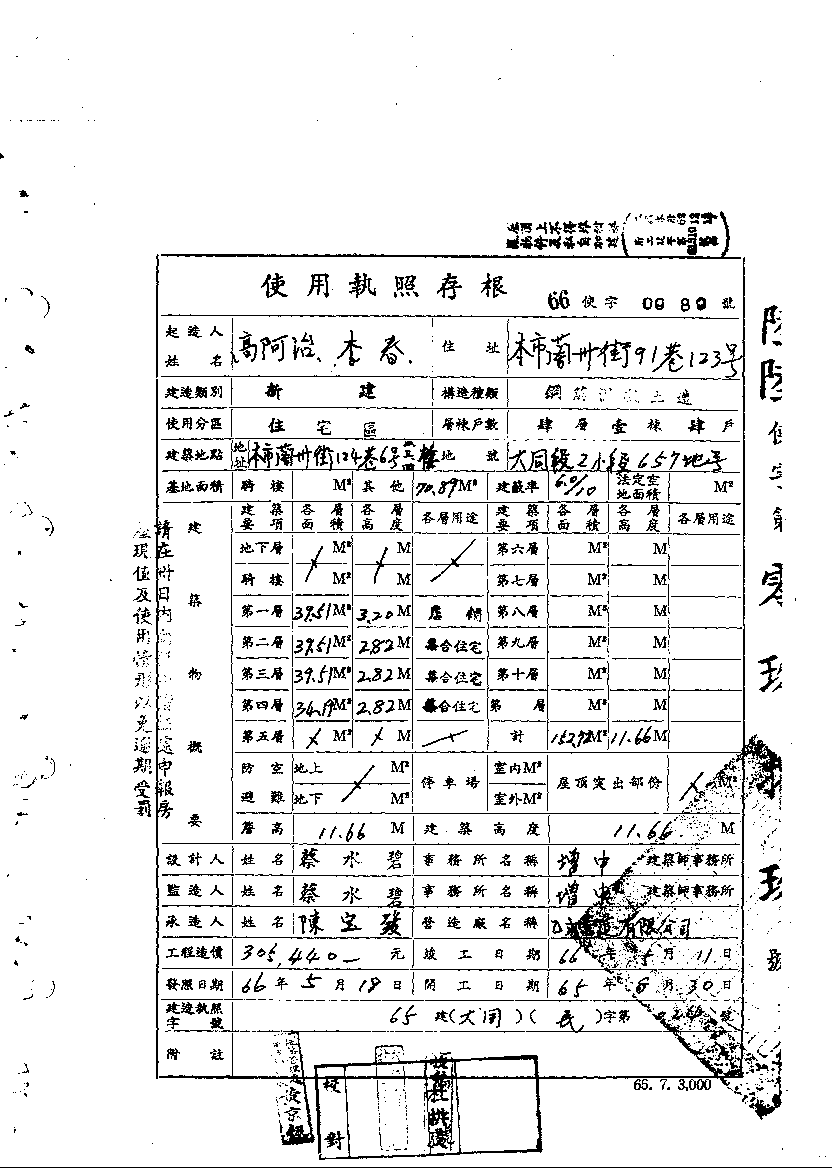 使用執照存根 66使字0989號
起造人姓名 高阿治、李春 住址 本市蘭州街91巷123号
建造類別 新建 構造種類 鋼筋 土造
使用分區 住宅區 層棟戶數 肆層壹棟肆戶
建築地點 地址 本市蘭州街124巷6号 樓 地號 大同段2小段657地号
基地面積 騎樓 M² 其他 70.89M² 建蔽率 6.0/10 法定空地面積 M²
建築物概要
建築要項 各層面積 各層高度 各層用途 建築要項 各層面積 各層高度 各層用途
地下層 M² M 第六層 M² M
騎樓 M² M 第七層 M² M
第一層 39.51M² 3.20M 店鋪 第八層 M² M
第二層 39.51M² 2.82M 集合住宅 第九層 M² M
第三層 39.51M² 2.82M 集合住宅 第十層 M² M
第四層 34.19M² 2.82M 集合住宅 第 層 M² M
第五層 M² M 計 152.72M² 11.66M
防空避難 地上 M² 地下 M² 停車場 室內M² 室外M² 屋頂突出部份 M²
簷高 11.66 M 建築高度 11.66 M
設計人 姓名 蔡水碧 事務所名稱 增中 建築師事務所
監造人 姓名 蔡水碧 事務所名稱 增中 建築師事務所
承造人 姓名 陳宝發 營造廠名稱 有限公司
工程造價 305,440— 元 竣工日期 66年5月11日
發照日期 66年5月18日 開工日期 65年6月30日
建造執照字號 65建(大同)(民)字第 號
附註
65. 7. 3,000
請在卅日內
現值及使用情形以免逾期受罰
申報房
校對
使字第零玖 玖號